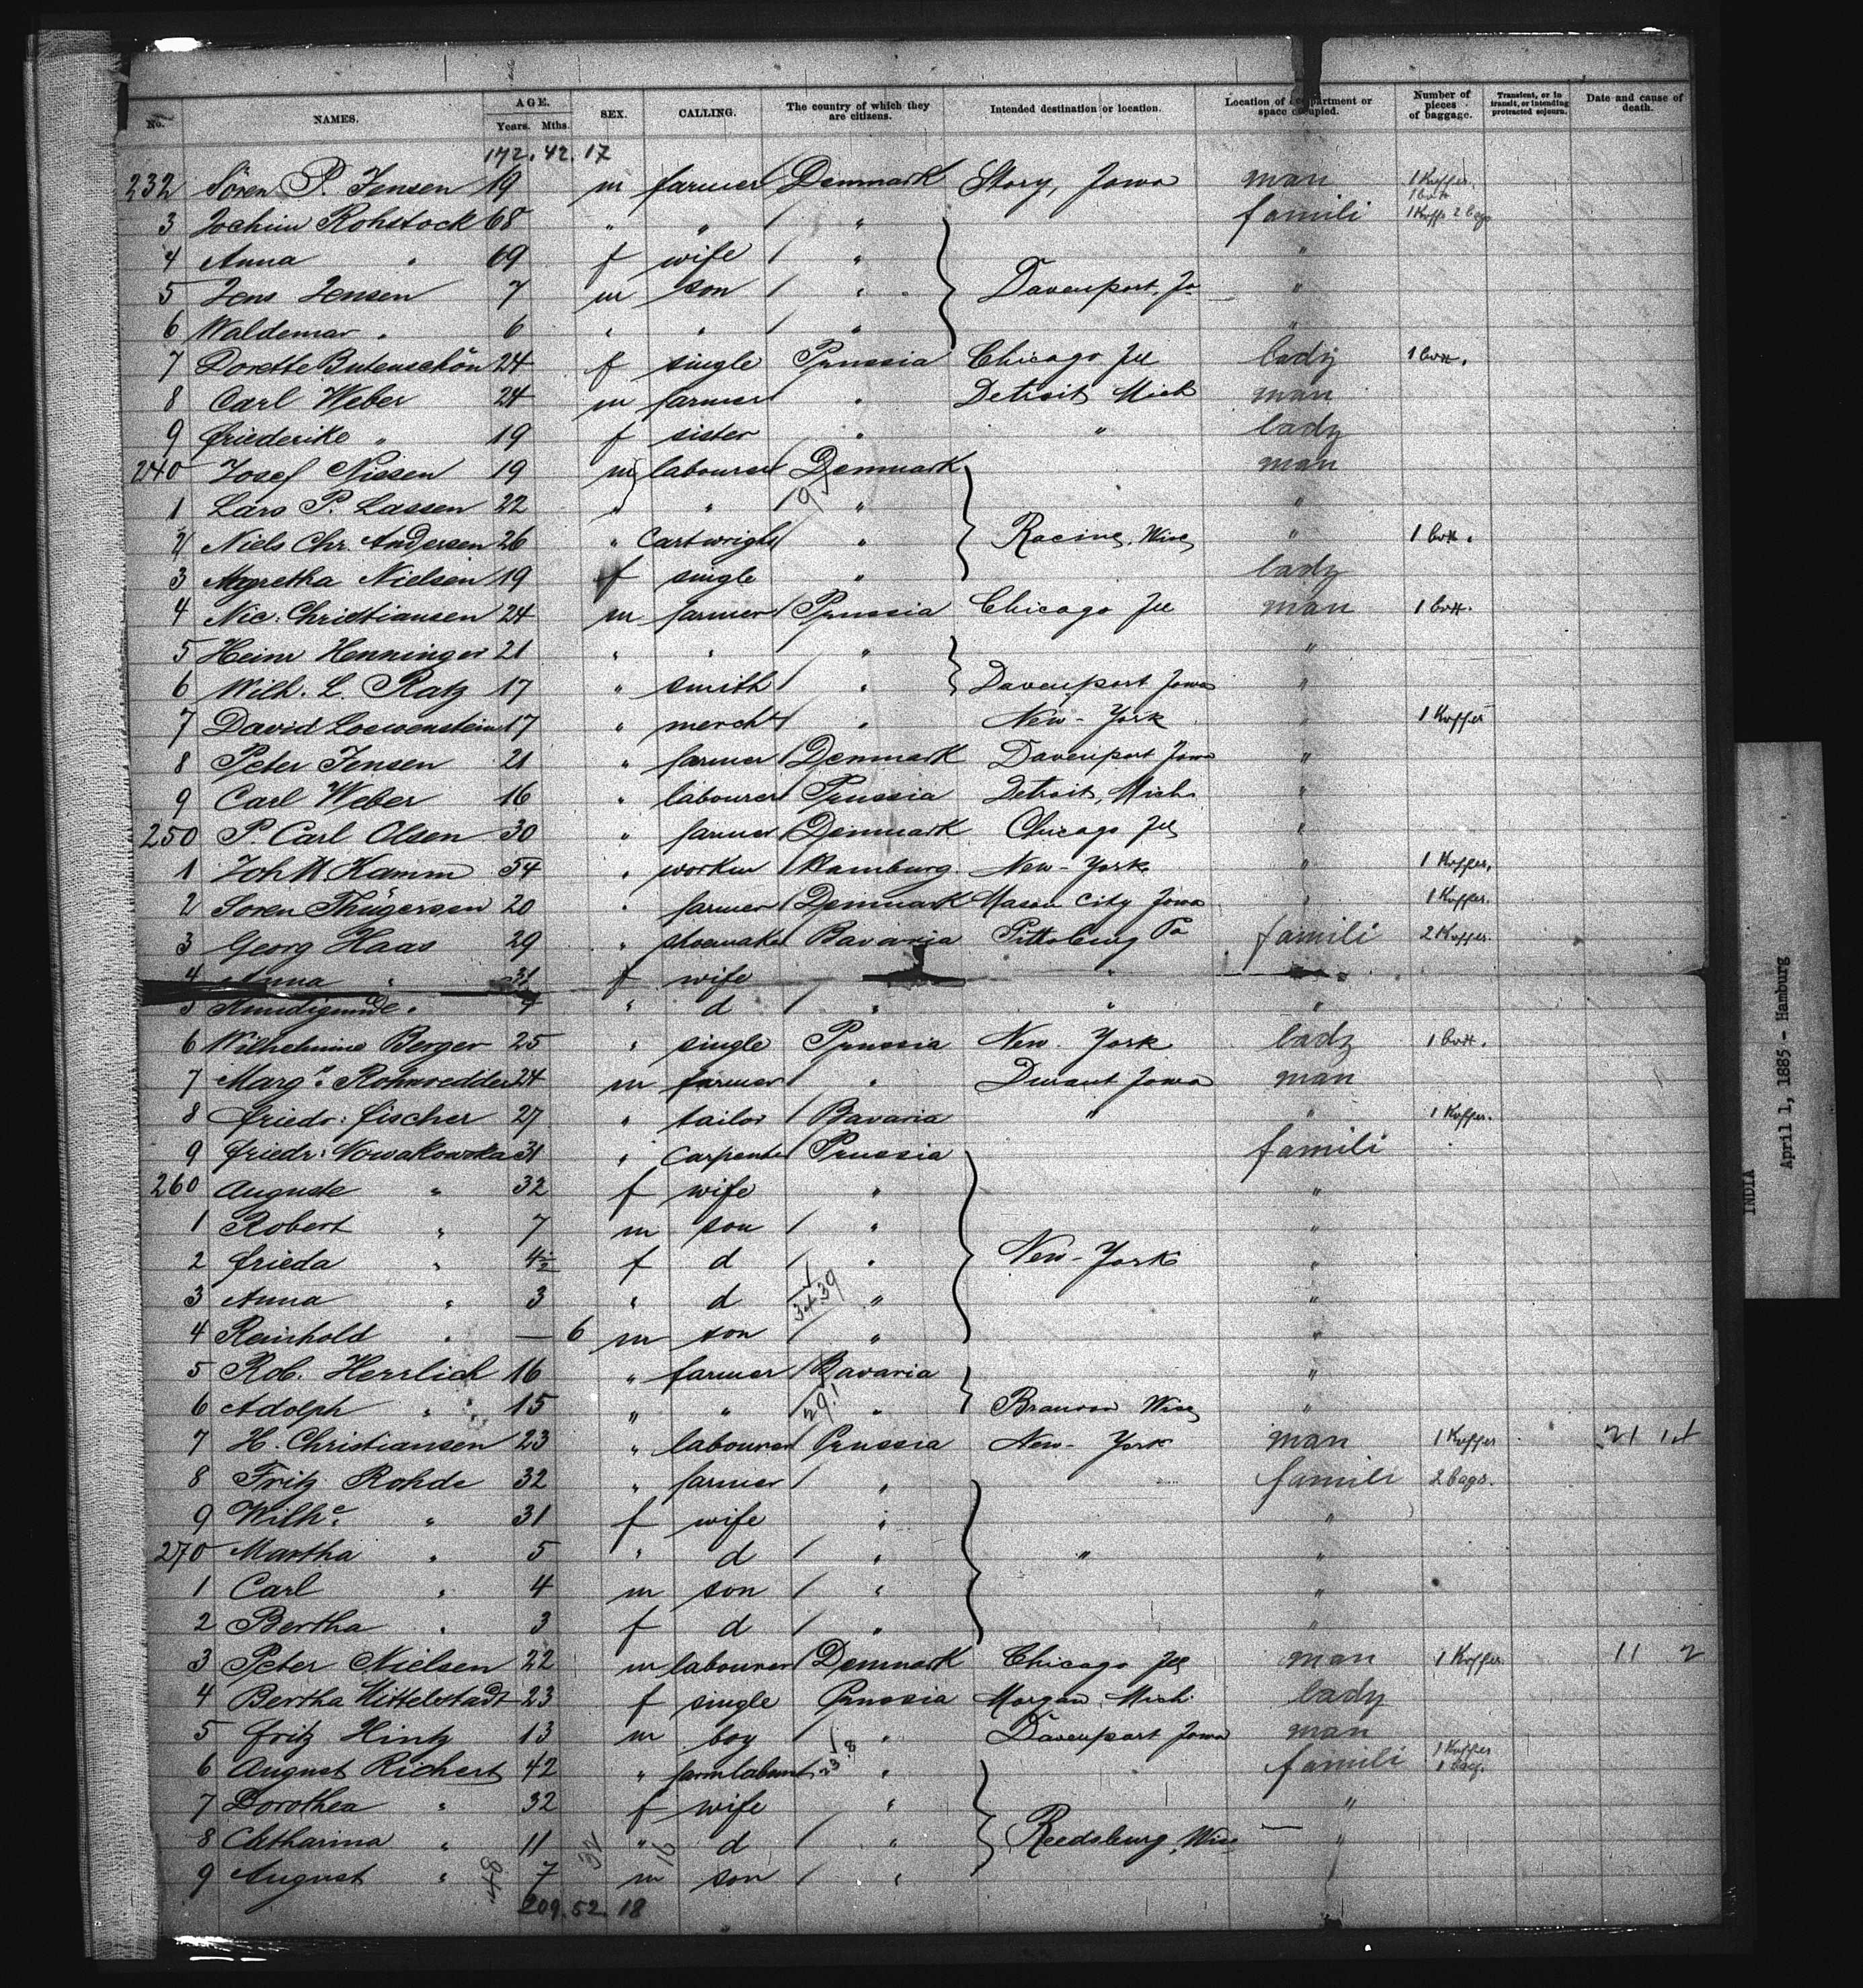 No. NAMES. AGE. Years. Mths. SEX. CALLING. The country of which they are citizens. Intended destination or location. Location of compartment or space occupied. Number of pieces of baggage. Transient, or in transit, or intending protracted sojourn. Date and cause of death.
172. 42. 17
232 Sören P. Jensen 19 m farmer Denmark Story, Iowa man 1 Koffer. 1 box
3 Jochim Rohstock 68 " " " famili 1 Koffr 2 bags
4 Anna " 69 f wife " "
5 Jens Jensen 7 m son " Davenport, Jo "
6 Waldemar " 6 " " " "
7 Dorette Butenschön 24 f single Prussia Chicago Ill lady 1 box.
8 Carl Weber 24 m farmer " Detroit Mich man
9 Friederike " 19 f sister " " lady
240 Josef Nissen 19 m labourer Denmark man
1 Lars P. Lassen 22 " " " "
2 Niels Chr. Andersen 26 " Cartwright " Racine, Wisc " 1 box.
3 Magretha Nielsen 19 f single " lady
4 Nic. Christiansen 24 m farmer Prussia Chicago Ill man 1 box.
5 Heinr Henninger 21 " " " "
6 Wilh. L. Ratz 17 " smith " Davenport Iowa "
7 David Loewenstein 17 " mercht " New-York " 1 Koffer
8 Peter Jensen 21 " farmer Denmark Davenport Iowa "
9 Carl Weber 16 " labourer Prussia Detroit, Mich "
250 P. Carl Olsen 30 " farmer Denmark Chicago Ill "
1 Joh H. Hamm 54 " worker Hamburg. New-York " 1 Koffer.
2 Soren Thügersen 20 " farmer Denmark Mason City Iowa " 1 Koffer.
3 Georg Haas 29 " shoemaker Bavaria Pittsburg Pa famili 2 Koffer.
4 Anna " 31 f wife "
5 " d " " "
6 Wilhelmine Berger 25 " single Prussia New York lady 1 box.
7 Marg. Rohwedder 24 m farmer " Durant Iowa man
8 Friedr: Fischer 27 " tailor Bavaria " " 1 Koffer.
9 Friedr: Nowakowska 31 " Carpenter Prussia famili
260 Auguste " 32 f wife " "
1 Robert " 7 m son " "
2 Frieda " 4 f d " New-York "
3 Anna " 3 " d " "
4 Reinhold " — 6 m son " "
5 Rob. Herrlich 16 " farmer Bavaria "
6 Adolph " 15 " " 29! " Wisc "
7 H. Christiansen 23 " labourer Prussia New-York man 1 Koffer 21
8 Fritz Rohde 32 " farmer " famili 2 bags.
9 Wilhe. " 31 f wife " "
270 Martha " 5 " d " " "
1 Carl " 4 m son " "
2 Bertha " 3 f d " "
3 Peter Nielsen 22 m labourer Denmark Chicago Ill man 1 Koffer 11 2
4 Bertha Mittelstadt 23 f single Prussia Morgan Mich. lady
5 Fritz Hintz 13 m boy " Davenport Iowa man
6 August Richert 42 " farmlabour " famili 1 Koffer 1 bag.
7 Dorothea " 32 f wife " "
8 Catharina " 11 " d " Reedsburg, Wisc "
9 August " 7 m son " "
209. 52. 18
INDIA
April 1, 1885 - Hamburg